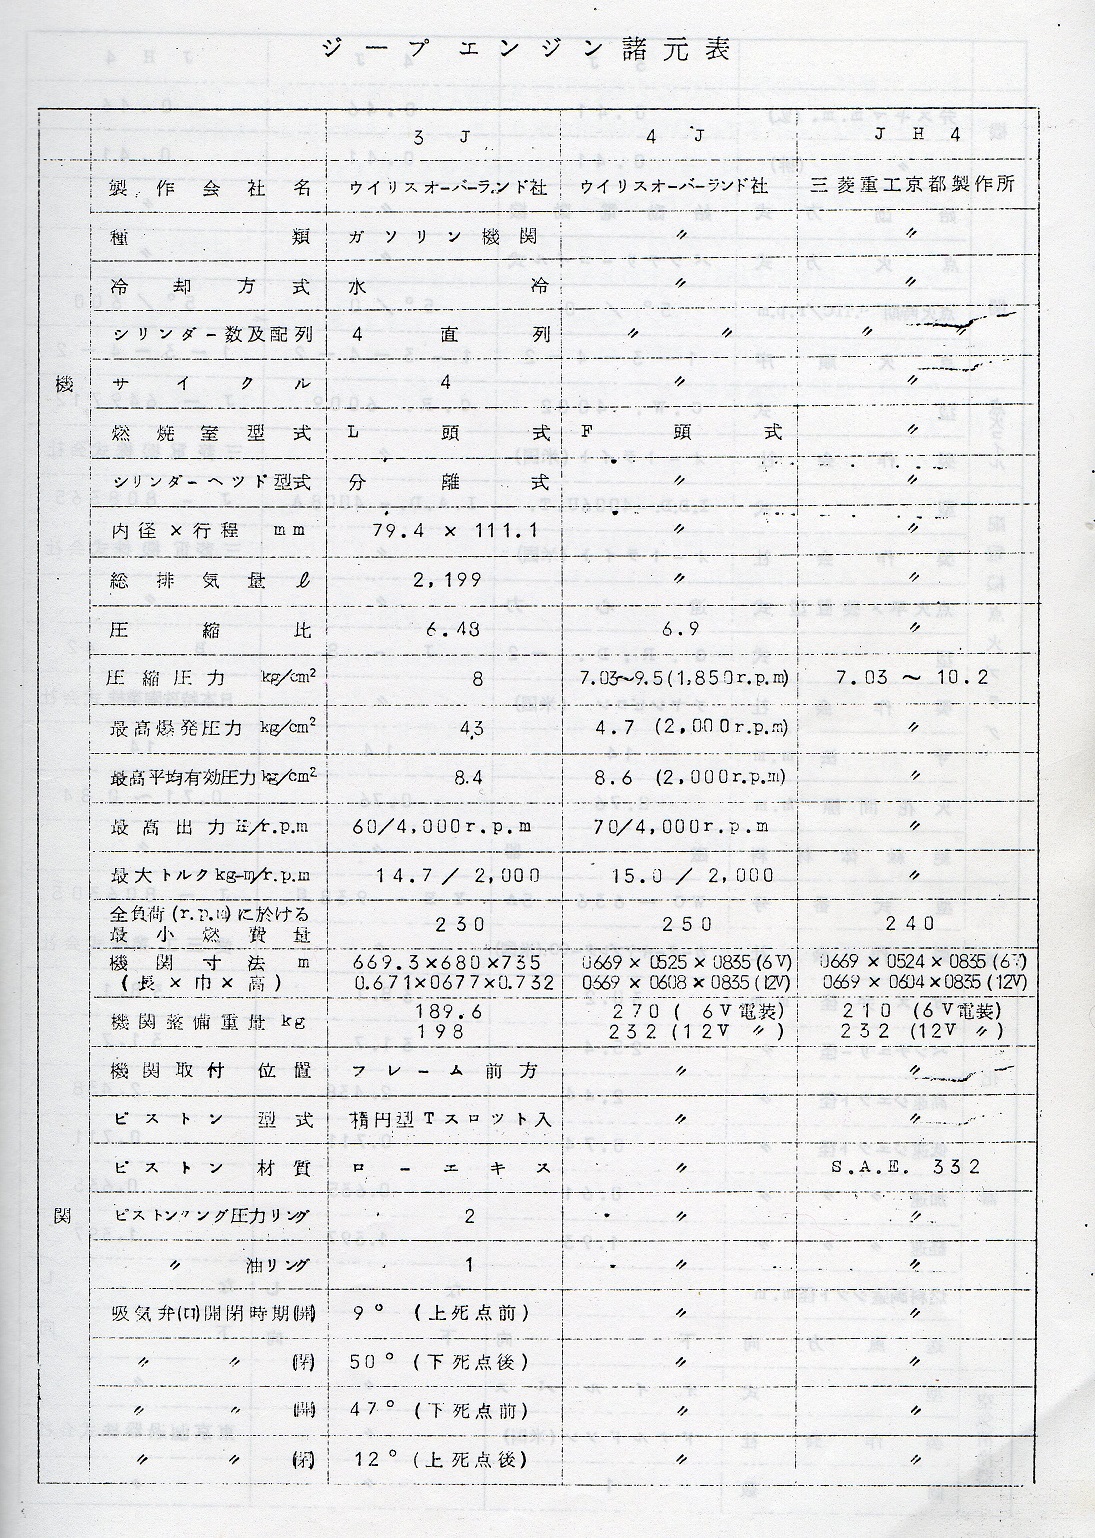 ジープエンジン諸元表
3J 4J JH4
製作会社名 ウイリスオーバーランド社 ウイリスオーバーランド社 三菱重工京都製作所
種類 ガソリン機関 〃 〃
冷却方式 水冷 〃 〃
シリンダー数及配列 4直列 〃 〃 〃 〃
機 サイクル 4 〃 〃
燃焼室型式 L頭式 F頭式 〃
シリンダーヘッド型式 分離式 〃 〃
内径×行程 mm 79.4 × 111.1 〃 〃
総排気量 ℓ 2,199 〃 〃
圧縮比 6.48 6.9 〃
圧縮圧力 kg/cm² 8 7.03~9.5(1,850r.p.m) 7.03 ~ 10.2
最高爆発圧力 kg/cm² 43 4.7 (2,000r.p.m) 〃
最高平均有効圧力 kg/cm² 8.4 8.6 (2,000r.p.m) 〃
最高出力 H/r.p.m 60/4,000r.p.m 70/4,000r.p.m 〃
最大トルク kg-m/r.p.m 14.7 / 2,000 15.0 / 2,000 〃
全負荷(r.p.m)に於ける
最小燃費量 230 250 240
機関寸法 m 669.3×680×735 0669 × 0525 × 0835 (6V) 0669 × 0524 × 0835 (6V)
(長×巾×高) 0.671×0677×0.732 0669 × 0608 × 0835 (12V) 0669 × 0604 × 0835 (12V)
機関整備重量 kg 189.6 270 ( 6V電装) 210 (6V電装)
198 232 (12V 〃) 232 (12V 〃)
機関取付位置 フレーム前方 〃 〃
ピストン型式 楕円型Tスロット入 〃 〃
ピストン材質 ローエキス 〃 S.A.E. 332
関 ピストンリング圧力リング 2 〃 〃
〃 油リング 1 〃 〃
吸気弁(口)開閉時期(開) 9° (上死点前) 〃 〃
〃 〃 (閉) 50° (下死点後) 〃 〃
〃 〃 (開) 47° (下死点前) 〃 〃
〃 〃 (閉) 12° (上死点後) 〃 〃